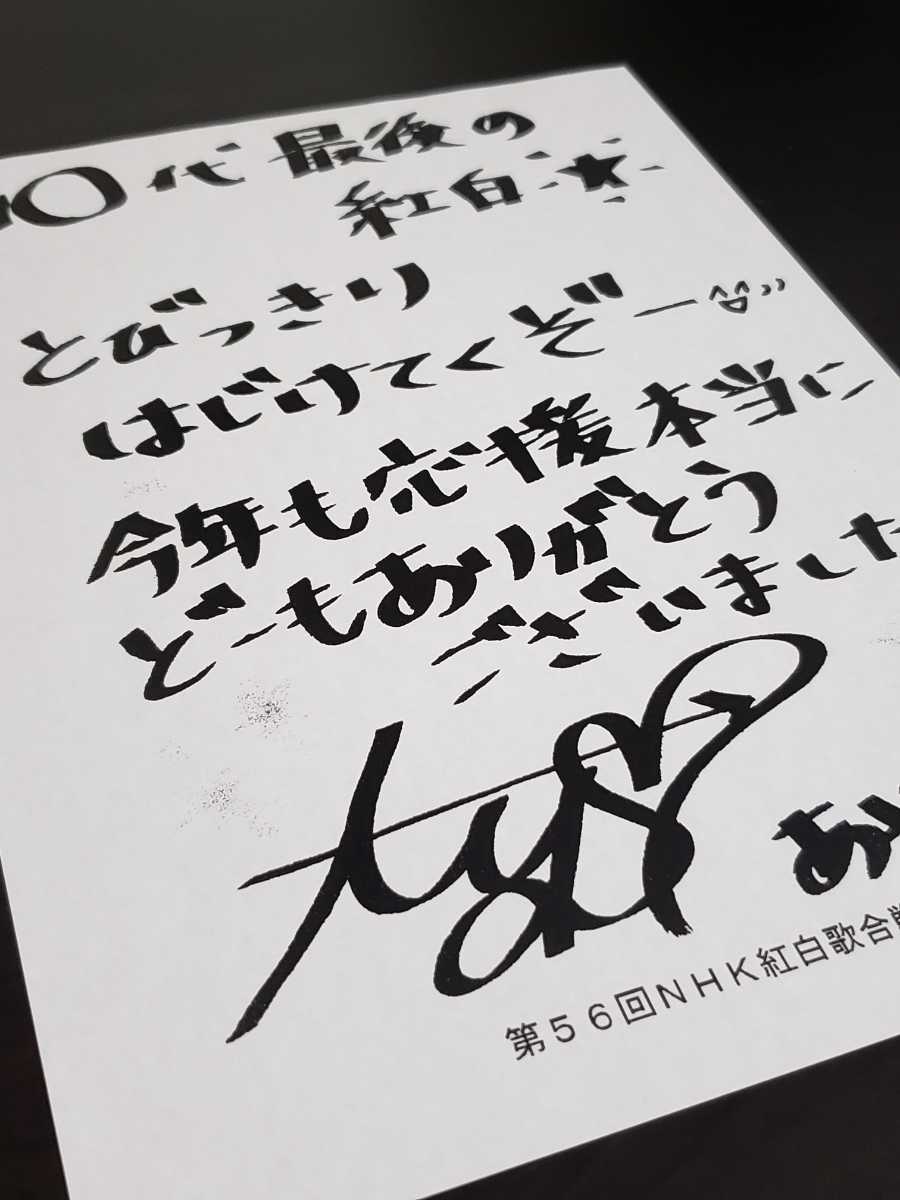 0代最後の
紅白☆
とびっきり
はじけてくぞー
今年も応援本当に
どーもありがとう
ございました
あ
第56回NHK紅白歌合戦